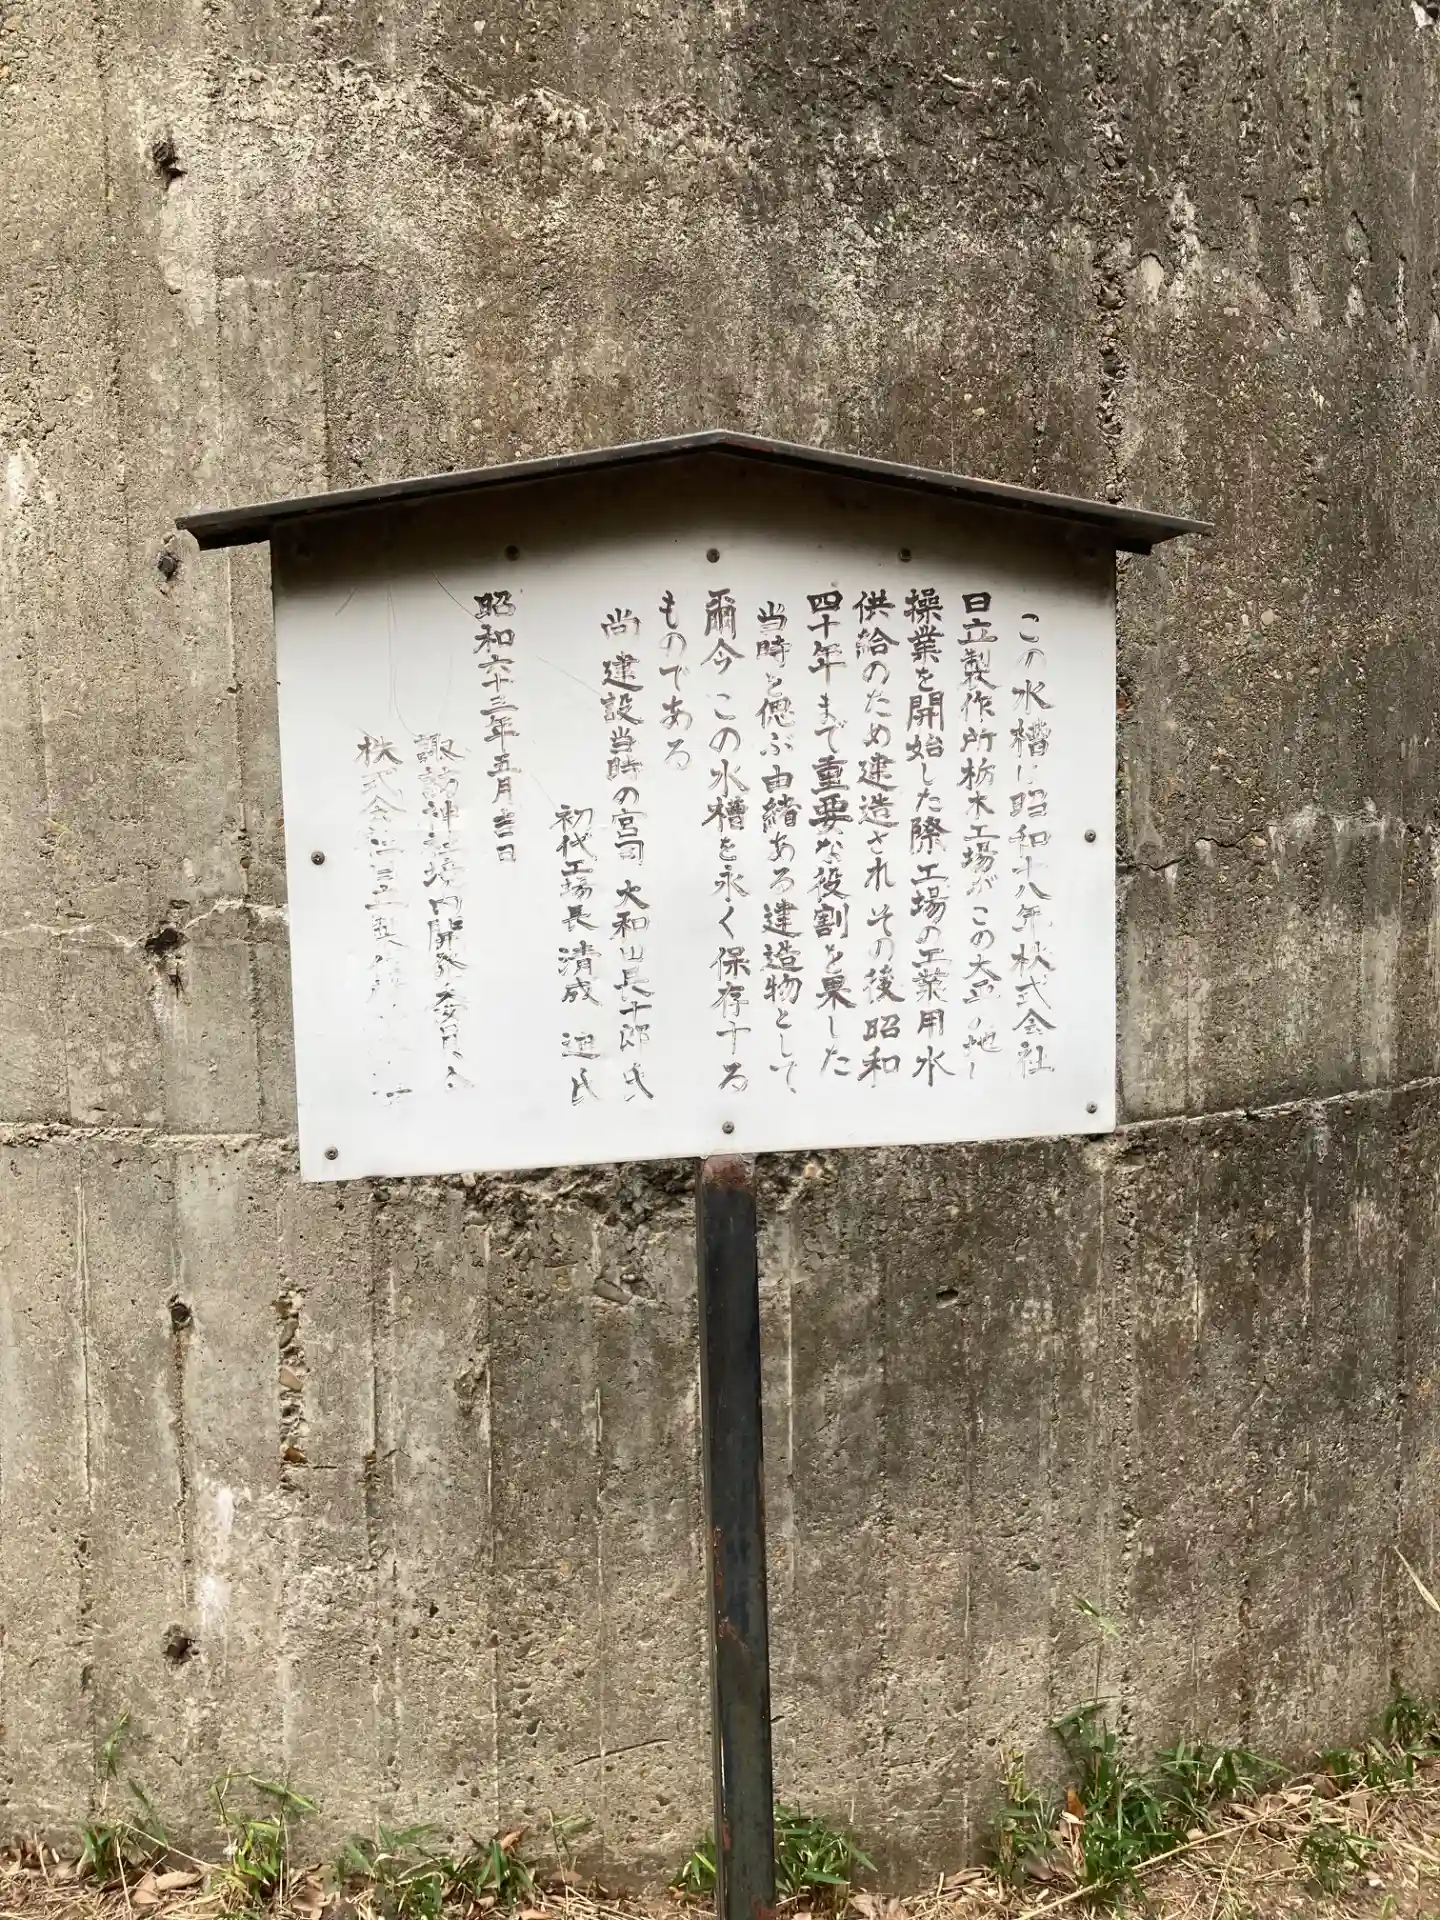 この水槽は昭和十八年秋式会社
日立製作所栃木工場がこの大平の地に
操業を開始した際工場の工業用水
供給のため建造されその後昭和
四十年まで重要な役割を果した
当時を偲ぶ由緒ある建造物として
爾今この水槽を永く保存する
ものである
尚建設当時の宮司 大和山長十郎氏
初代工場長 清成 迪氏
昭和六十三年五月吉日
諏訪神社境内開発委員会
株式会社日立製作所